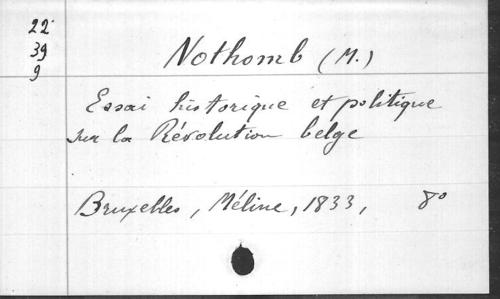 22
39
9
Nothomb (M.)
Essai historique et politique
sur la Révolution belge
Bruxelles, Méline, 1833, 8°